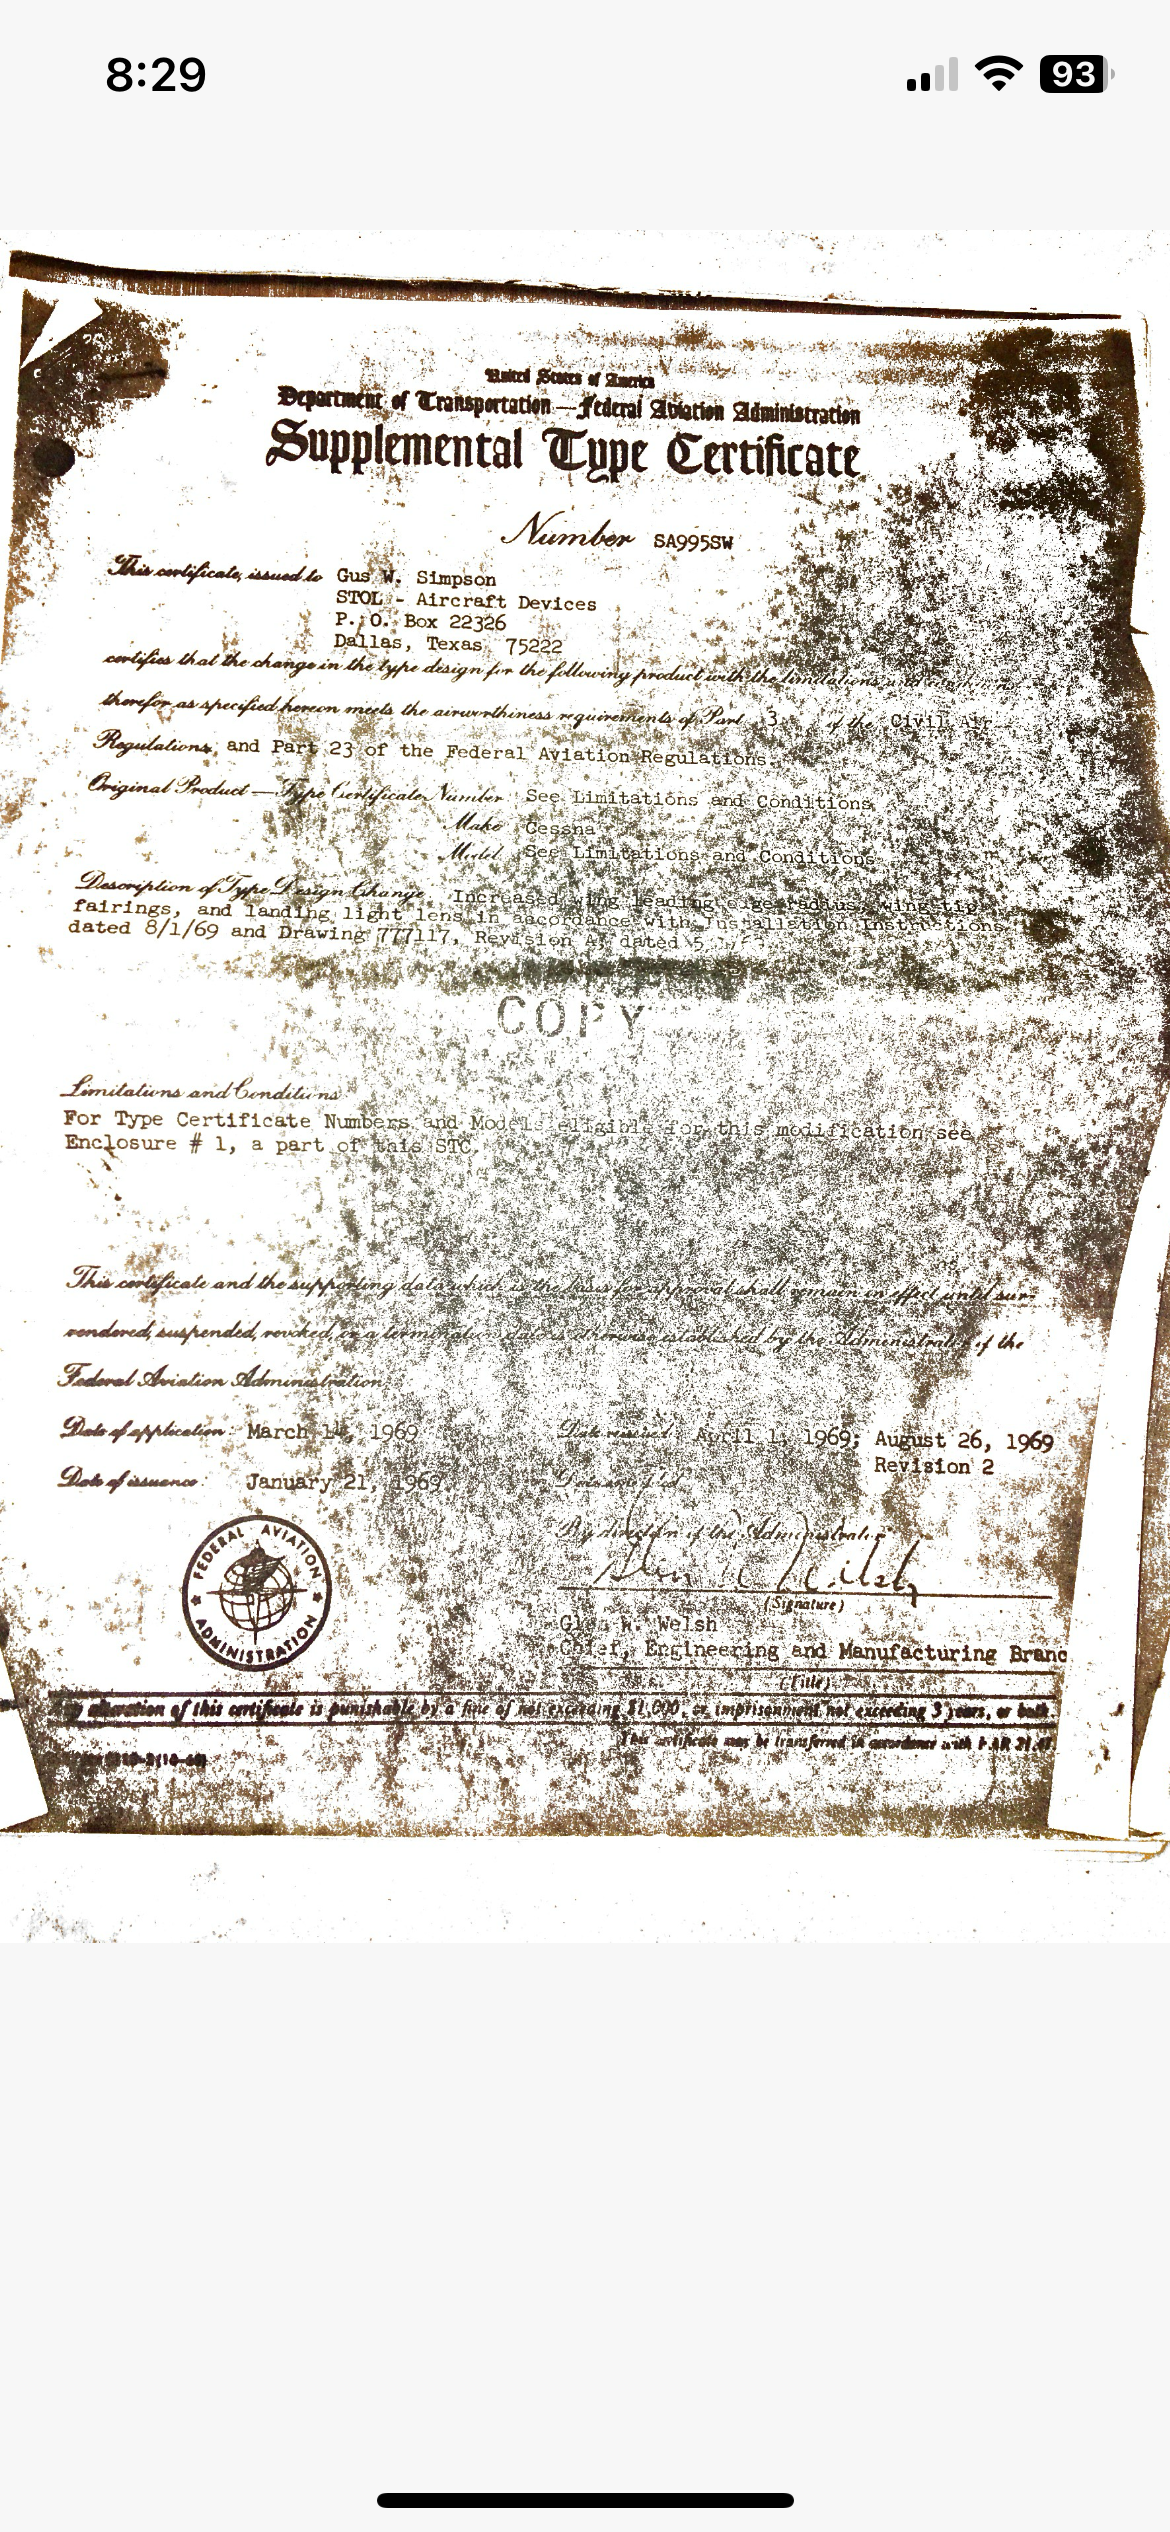 8:29
93
United States of America
Department of Transportation—Federal Aviation Administration
Supplemental Type Certificate
Number SA995SW
This certificate, issued to Gus W. Simpson
STOL - Aircraft Devices
P. O. Box 22326
Dallas, Texas 75222
certifies that the change in the type design for the following product with the limitations and conditions
therefor as specified hereon meets the airworthiness requirements of Part 3 of the Civil Air
Regulations, and Part 23 of the Federal Aviation Regulations.
Original Product—Type Certificate Number: See Limitations and Conditions
Make: Cessna
Model: See Limitations and Conditions
Description of Type Design Change: Increased wing leading edge radius, wing tip
fairings, and landing light lens in accordance with Installation Instructions
dated 8/1/69 and Drawing 777117, Revision A, dated
COPY
Limitations and Conditions
For Type Certificate Numbers and Models eligible for this modification see
Enclosure # 1, a part of this STC.
This certificate and the supporting data which is the basis for approval shall remain in effect until sur-
rendered, suspended, revoked, or a termination date is otherwise established by the Administrator of the
Federal Aviation Administration.
Date of application: March 1969 Date reissued: April 1, 1969; August 26, 1969
Revision 2
Date of issuance: January 21, 1969
By direction of the Administrator
FEDERAL AVIATION ADMINISTRATION
(Signature)
Welsh
Chief, Engineering and Manufacturing Branc
(Title)
alteration of this certificate is punishable by a fine of not exceeding $1,000, or imprisonment not exceeding 3 years, or both
This certificate may be transferred in accordance with FAR 21.47